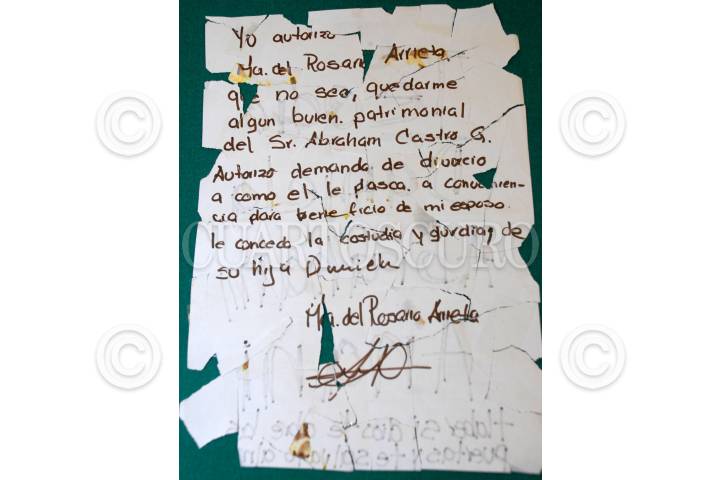 Yo autorizo
Ma. del Rosari Arrieta
que no sea, quedarme
algun buien. patrimonial
del Sr. Abraham Castro G.
Autorizo demanda de divorcio
a como el le plasca. a convenien-
cia para bene ficio de mi esposo.
le concedo la costudia y gurdia, de
su hija
CUARTOSCURO
Ma. del Rosario Arrieta